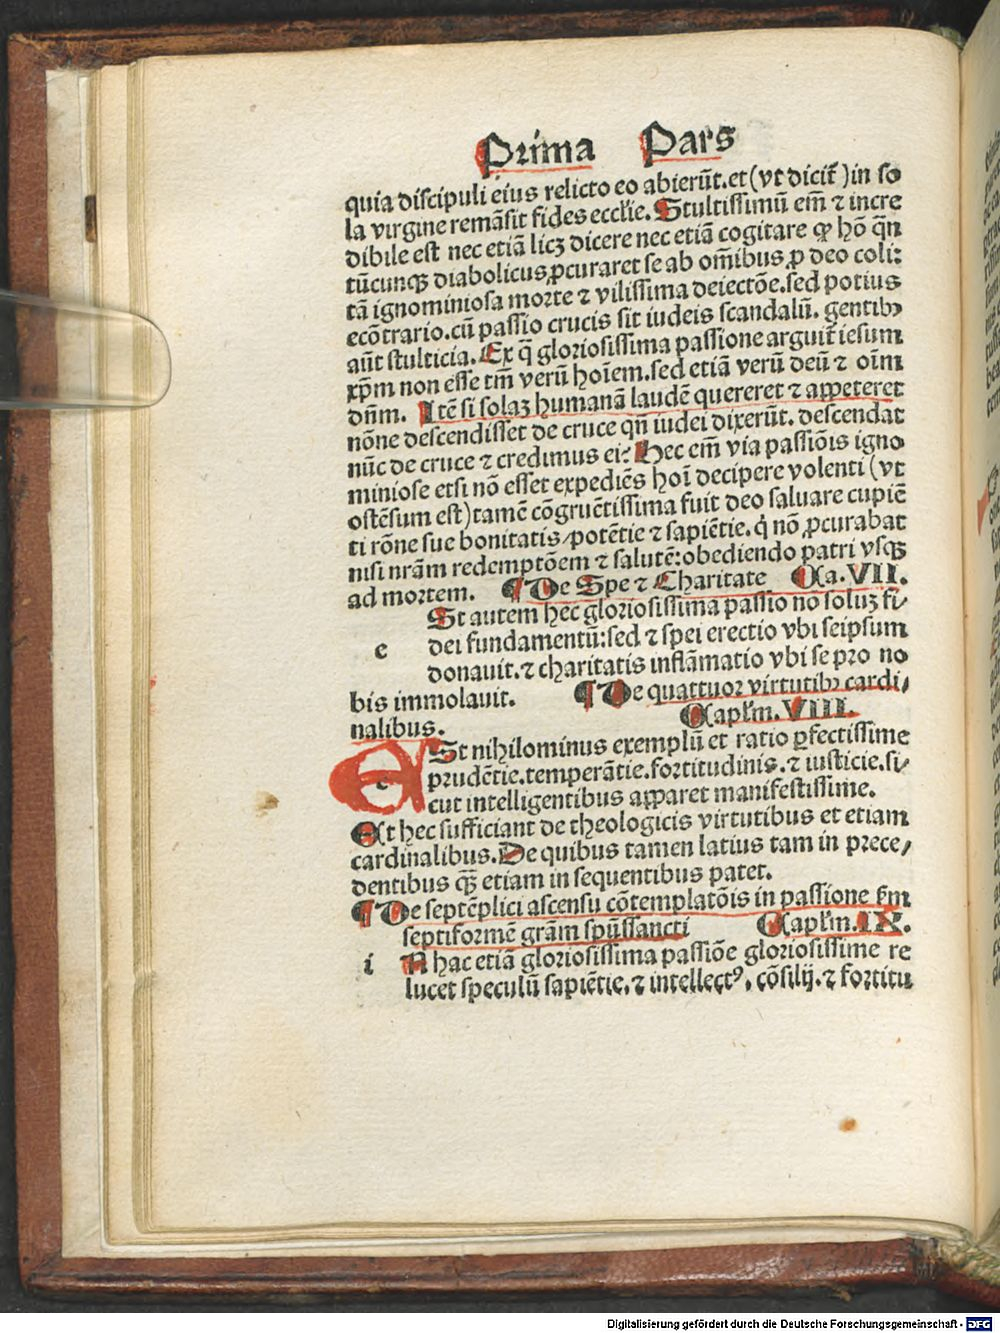 Prima Pars
quia discipuli eius relicto eo abierūt.et(vt dicit̄)in so
la virgine remāsit fides eccl'ie.Stultissimū em̄ ⁊ incre
dibile est nec etiā licꝫ dicere nec etiā cogitare ꝙ hō q̄n
tūcunqꝫ diabolicus,ꝓcuraret se ab om̄ibus,ꝑ deo coli:
tā ignominiosa morte ⁊ vilissima deiectōe.sed potius
ecōtrario.cū passio crucis sit iudeis scandalū. gentibꝫ
aūt stulticia.Ex q̄ gloriosissima passione arguit̄ iesum
xp̄m non esse tm̄ verū hoīem.sed etiā verū deū ⁊ oīm
dn̄m. Itē si solaꝫ humanā laudē quereret ⁊ appeteret
nōne descendisset de cruce qn̄ iudei dixerūt. descendat
nūc de cruce ⁊ credimus ei? Hec em̄ via passiōis igno
miniose etsi nō esset expediēs hoī decipere volenti (vt
ostēsum est)tamē cōgruētissima fuit deo saluare cupiē
ti rōne sue bonitatis/potētie ⁊ sapiētie. q̇ nō ꝓcurabat
nisi nrām redemptōem ⁊ salutē:obediendo patri vsqꝫ
ad mortem. ¶ De Spe ⁊ Charitate Ca.VII.
St autem hec gloriosissima passio no soluꝫ fi/
e dei fundamentū:sed ⁊ spei erectio vbi seipsum
donauit.⁊ charitatis inflāmatio vbi se pro no
bis immolauit. ¶ De quattuor virtutibꝫ cardi/
nalibus. Capl'm.VIII.
e St nihilominus exemplū et ratio ꝑfectissime
prudētie.temperātie.fortitudinis.⁊ iusticie.si/
cut intelligentibus apparet manifestissime.
Et hec sufficiant de theologicis virtutibus et etiam
cardinalibus.De quibus tamen latius tam in prece/
dentibus qꝫ̄ etiam in sequentibus patet.
¶ De septēplici ascensu cōtemplatōis in passione ẜm
septiformē grām spūssancti Capl'm.IX.
i N hac etiā gloriosissima passiōe gloriosissime re
lucet speculū sapiētie.⁊ intellectꝰ. cōsilij.⁊ fortitu
Digitalisierung gefördert durch die Deutsche Forschungsgemeinschaft - DFG